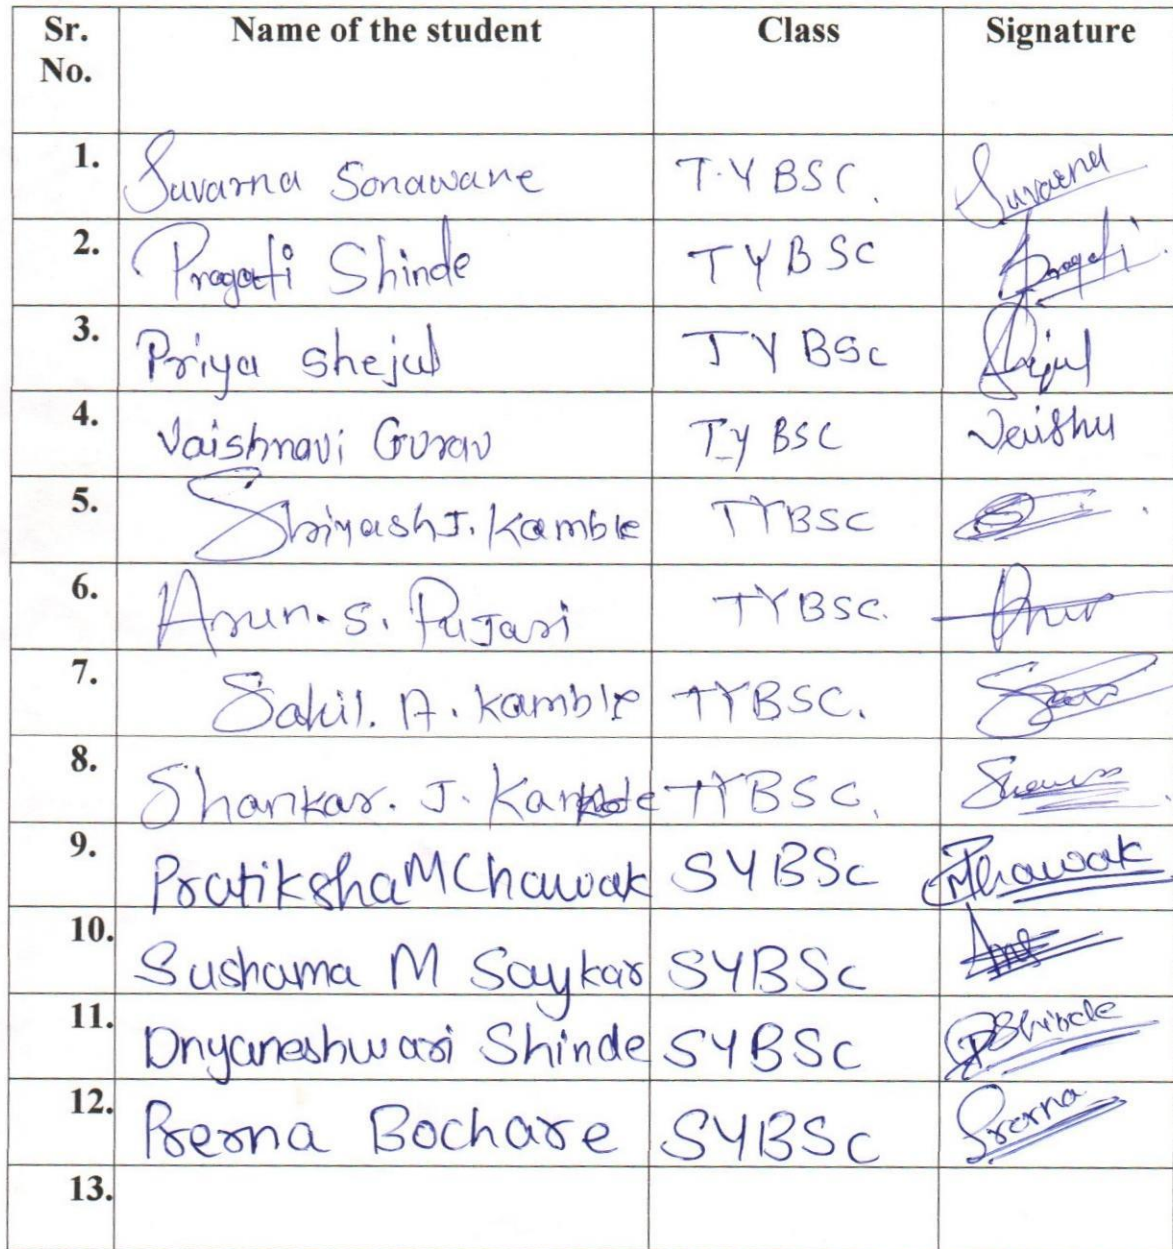 Sr. No. Name of the student Class Signature
1. Suvarna Sonawane T.Y BSC. Suvarna
2. Pragati Shinde TYBSC Pragati
3. Priya Shejul TYBSc Shejul
4. Vaishnavi Gurav Ty BSC Vaishu
5. Shriyash J. Kamble TYBSC
6. Arun. S. Pujari TYBSC.
7. Sahil. A. Kamble TYBSC.
8. Shankar. J. Kamble TYBSC.
9. Pratiksha M Chawak SYBSc Chawak
10. Sushama M Saykar SYBSc
11. Dnyaneshwari Shinde SYBSc DShinde
12. Prerna Bochare SYBSc Prerna
13.